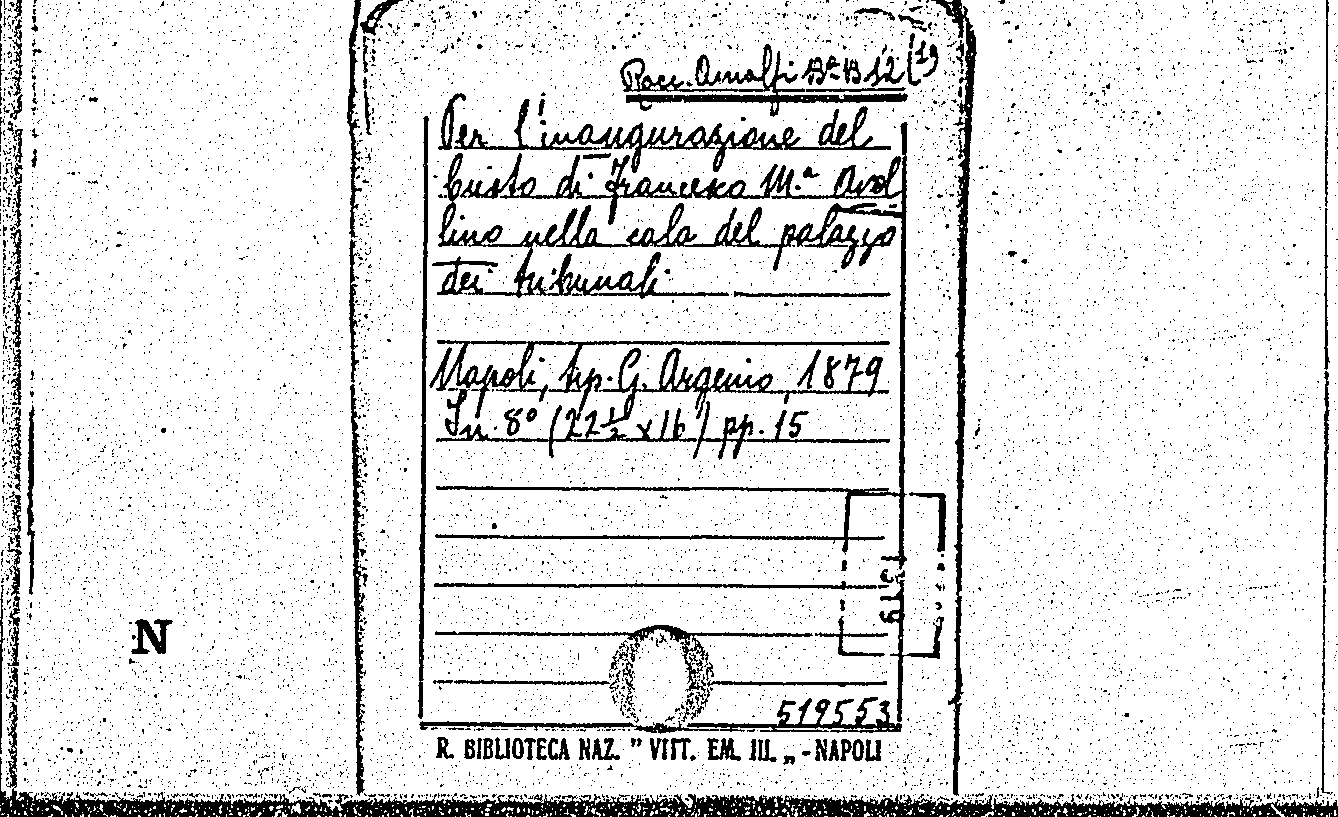 Racc. Amalfi Bª B 12 (19
Per l'inaugurazione del
busto di Francesco M.ª Avel
lino nella sala del palazzo
dei tribunali
Napoli, tip. G. Argenio, 1879
In 8º (22 ½ x 16) pp. 15
N
519553
R. BIBLIOTECA NAZ. " VITT. EM. III. „ - NAPOLI